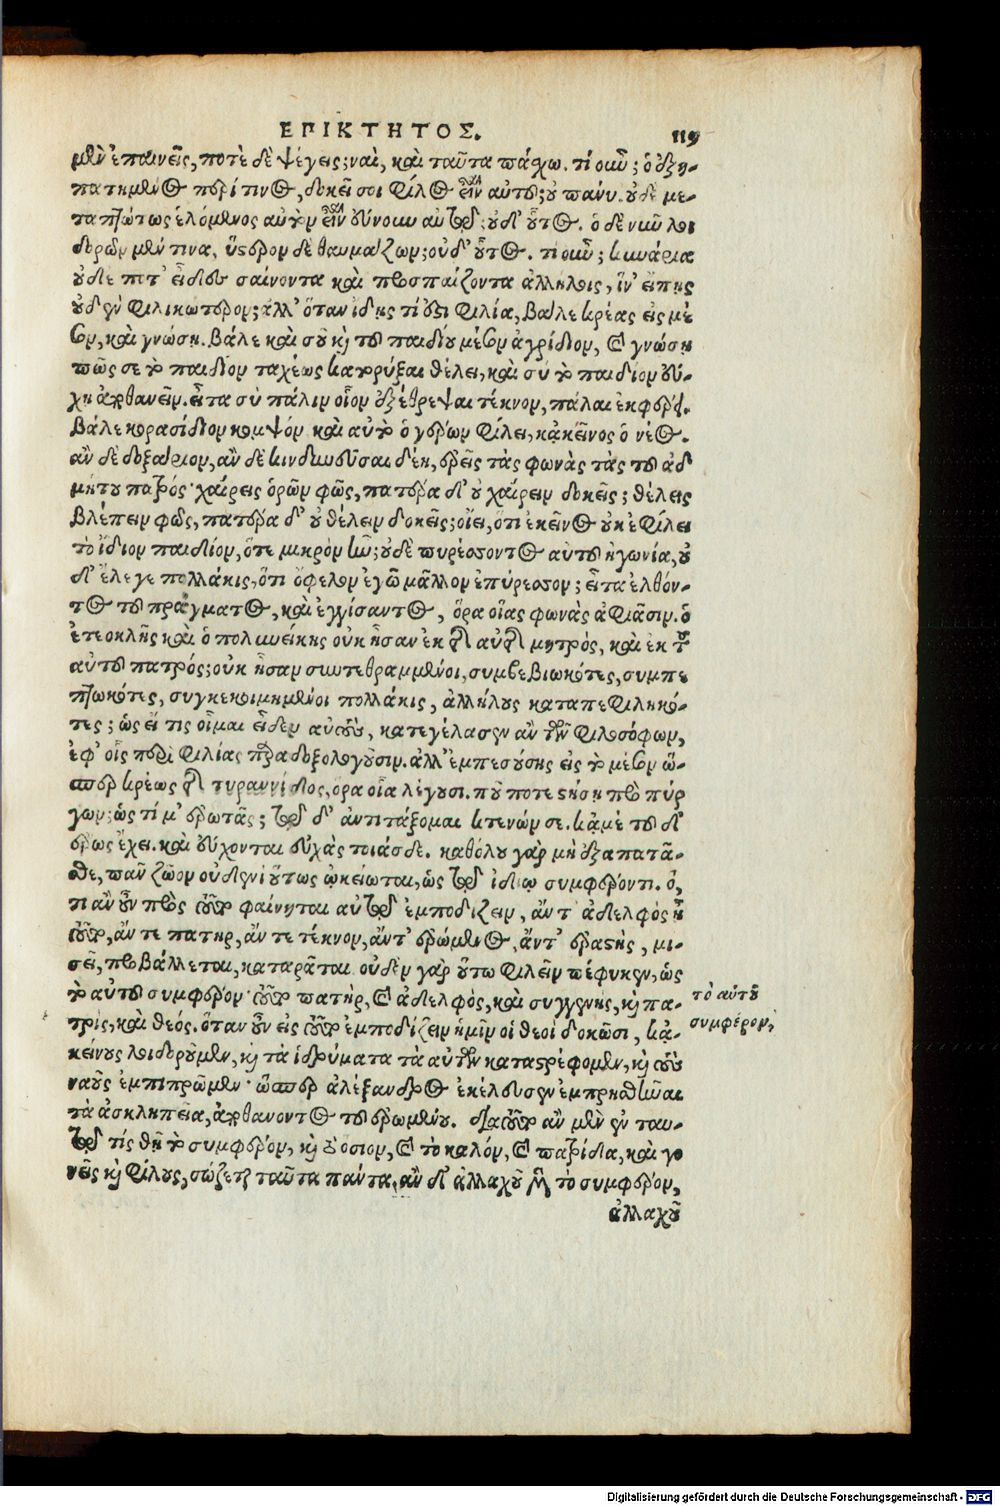 ΕΠΙΚΤΗΤΟΣ. 119
μὲν ἐπαινεῖς, ποτὲ δὲ ψέγεις; ναὶ, καὶ ταῦτα πάσχω. τί οὖν; ὁ ἐξη-
πατημένος περί τινος, δοκεῖ σοι φίλος εἶναι αὐτοῦ; οὐ πάνυ. οὐδὲ με-
ταπτώτως ἑλόμενος αὐτὸν εἶναι εὔνουν αὐτῷ; οὐδ' οὗτος. ὁ δὲ νῦν λοι
δορῶν μέν τινα, ὕστερον δὲ θαυμάζων; οὐδ' οὗτος. τί οὖν; κυνάρια
οὐδέποτ' εἶδες σαίνοντα καὶ προσπαίζοντα ἀλλήλοις, ἵν' εἴπῃς
οὐδὲν φιλικώτερον; ἀλλ' ὅταν ἴδῃς τί ἐστι φιλία, βάλε κρέας εἰς μέ
σον, καὶ γνώσῃ. βάλε καὶ σοῦ καὶ τοῦ παιδίου μέσον ἀγρίδιον, καὶ γνώσῃ
πῶς σε τὸ παιδίον ταχέως κατορύξαι θέλει, καὶ σὺ τὸ παιδίον εὔ-
χῃ ἀποθανεῖν. εἶτα σὺ πάλιν οἷον ἐξέθρεψα τέκνον, πάλαι ἐκφέρει.
βάλε κορασίδιον κομψὸν καὶ αὐτὸ ὁ γέρων φιλεῖ, κἀκεῖνος ὁ νέος.
ἂν δὲ δοξάριον, ἂν δὲ κινδυνεῦσαι δέῃ, ἐρεῖς τὰς φωνὰς τὰς τοῦ ἀδ
μήτου πατρός· χαίρεις ὁρῶν φῶς, πατέρα δ' οὐ χαίρειν δοκεῖς; θέλεις
βλέπειν φῶς, πατέρα δ' οὐ θέλειν δοκεῖς; οἴει, ὅτι ἐκεῖνος οὐκ ἐφίλει
τὸ ἴδιον παιδίον, ὅτε μικρὸν ἦν; οὐδὲ πυρέσσοντος αὐτοῦ ἠγωνία, οὐ
δ' ἔλεγε πολλάκις, ὅτι ὄφελον ἐγὼ μᾶλλον ἐπύρεσσον; εἶτα ἐλθόν-
τος τοῦ πράγματος, καὶ ἐγγίσαντος, ὅρα οἵας φωνὰς ἀφιᾶσιν. ὁ
ἐτεοκλῆς καὶ ὁ πολυνείκης οὐκ ἦσαν ἐκ τῆς αὐτῆς μητρὸς, καὶ ἐκ τοῦ
αὐτοῦ πατρός; οὐκ ἦσαν συντεθραμμένοι, συμβεβιωκότες, συμπε
πτωκότες, συγκεκοιμημένοι πολλάκις, ἀλλήλους καταπεφιληκό-
τες; ὡς εἴ τις οἶμαι εἶδεν αὐτοὺς, κατεγέλασεν ἂν τῶν φιλοσόφων,
ἐφ' οἷς περὶ φιλίας παραδοξολογοῦσιν. ἀλλ' ἐμπεσούσης εἰς τὸ μέσον ὥ-
σπερ κρέως τῆς τυραννίδος, ὅρα οἷα λέγουσι. ποῦ ποτε στήσῃ πρὸ πύρ
γων; ὡς τί μ' ἐρωτᾷς; τῷ δ' ἀντιτάξομαι κτενῶν σε. κἀμὲ τοῦ δ'
ἔρως ἔχει. καὶ εὔχονται εὐχὰς τοιάσδε. καθόλου γὰρ μὴ ἐξαπατᾶ-
σθε, πᾶν ζῶον οὐδενὶ οὕτως ᾠκείωται, ὡς τῷ ἰδίῳ συμφέροντι. ὅ,
τι ἂν οὖν πρὸς τοῦτο φαίνηται αὐτῷ ἐμποδίζειν, ἄν τ' ἀδελφὸς ᾖ
τοῦτο, ἄν τε πατὴρ, ἄν τε τέκνον, ἄν τ' ἐρώμενος, ἄν τ' ἐραστὴς, μι-
σεῖ, προβάλλεται, καταρᾶται. οὐδὲν γὰρ οὕτω φιλεῖν πέφυκεν, ὡς
τὸ αὑτοῦ συμφέρον· τοῦτο πατὴρ, καὶ ἀδελφὸς, καὶ συγγενὴς, καὶ πα-
τρὶς, καὶ θεός. ὅταν οὖν εἰς τοῦτο ἐμποδίζειν ἡμῖν οἱ θεοὶ δοκῶσι, κἀ-
κείνους λοιδοροῦμεν, καὶ τὰ ἱδρύματα τὰ αὐτῶν καταστρέφομεν, καὶ τοὺς
ναοὺς ἐμπιπρῶμεν· ὥσπερ ἀλέξανδρος ἐκέλευσεν ἐμπρησθῆναι
τὰ ἀσκληπεῖα, ἀποθανόντος τοῦ ἐρωμένου. διὰ τοῦτο ἂν μὲν ἐν ταυ-
τῷ τίς θῇ τὸ συμφέρον, καὶ τὸ ὅσιον, καὶ τὸ καλόν, καὶ πατρίδα, καὶ γο
νεῖς καὶ φίλους, σώζεται ταῦτα πάντα, ἂν δ' ἀλλαχοῦ μὲν τὸ συμφέρον,
ἀλλαχοῦ
τὸ αὑτοῦ
συμφέρον,
Digitalisierung gefördert durch die Deutsche Forschungsgemeinschaft - DFG